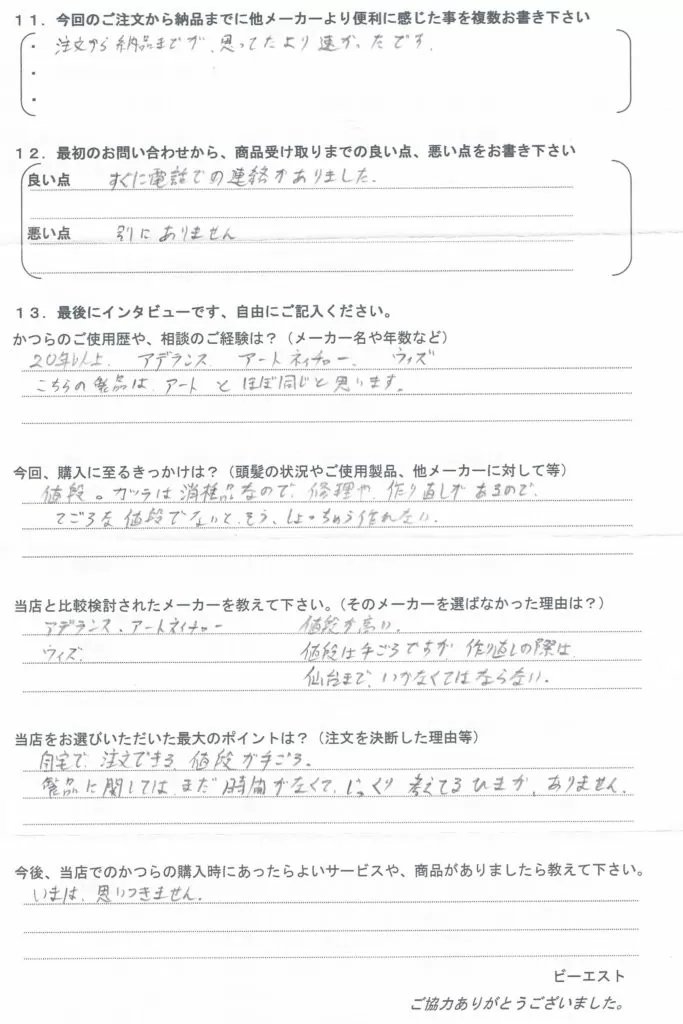 １１．今回のご注文から納品までに他メーカーより便利に感じた事を複数お書き下さい
・ 注文から納品までが、思ってたより速かったです。
・
・
１２．最初のお問い合わせから、商品受け取りまでの良い点、悪い点をお書き下さい
良い点　すぐに電話での連絡がありました。
悪い点　別にありません
１３．最後にインタビューです、自由にご記入ください。
かつらのご使用歴や、相談のご経験は？（メーカー名や年数など）
20年以上、アデランス、アートネイチャー、ウィズ
こちらの製品は、アートとほぼ同じと思います。
今回、購入に至るきっかけは？（頭髪の状況やご使用製品、他メーカーに対して等）
値段。カツラは消耗品なので、修理や、作り直しがあるので、
てごろな値段でないと、そう、しょっちゅう作れない。
当店と比較検討されたメーカーを教えて下さい。（そのメーカーを選ばなかった理由は？）
アデランス、アートネイチャー　値段が高い。
ウィズ　値段は手ごろですが、作り直しの際は
仙台まで、いかなくてはならない。
当店をお選びいただいた最大のポイントは？（注文を決断した理由等）
自宅で、注文できる、値段が手ごろ。
製品に関しては、まだ時間がなくて、じっくり考えてるひまが、ありません。
今後、当店でのかつらの購入時にあったらよいサービスや、商品がありましたら教えて下さい。
いまは、思いつきません。
ビーエスト
ご協力ありがとうございました。